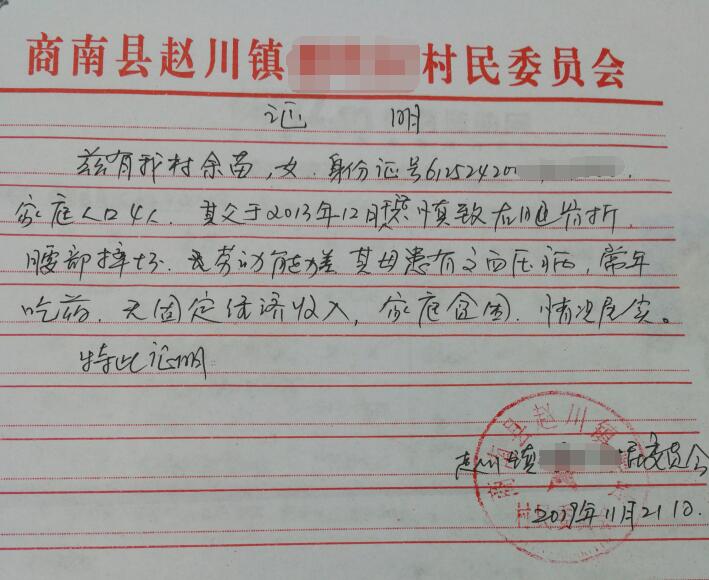 商南县赵川镇 村民委员会
证 明
兹有我村余苗,女.身份证号61252420
家庭人口4人.其父于2013年12月 慎致右腿骨折,
腰部摔伤.无劳动能 其母患有高血压病,常年
吃药.无固定经济收入,家庭贫困.情况属实。
特此证明
赵川镇 委员会
2019年11月21日.
商南县赵川镇
村民委员会